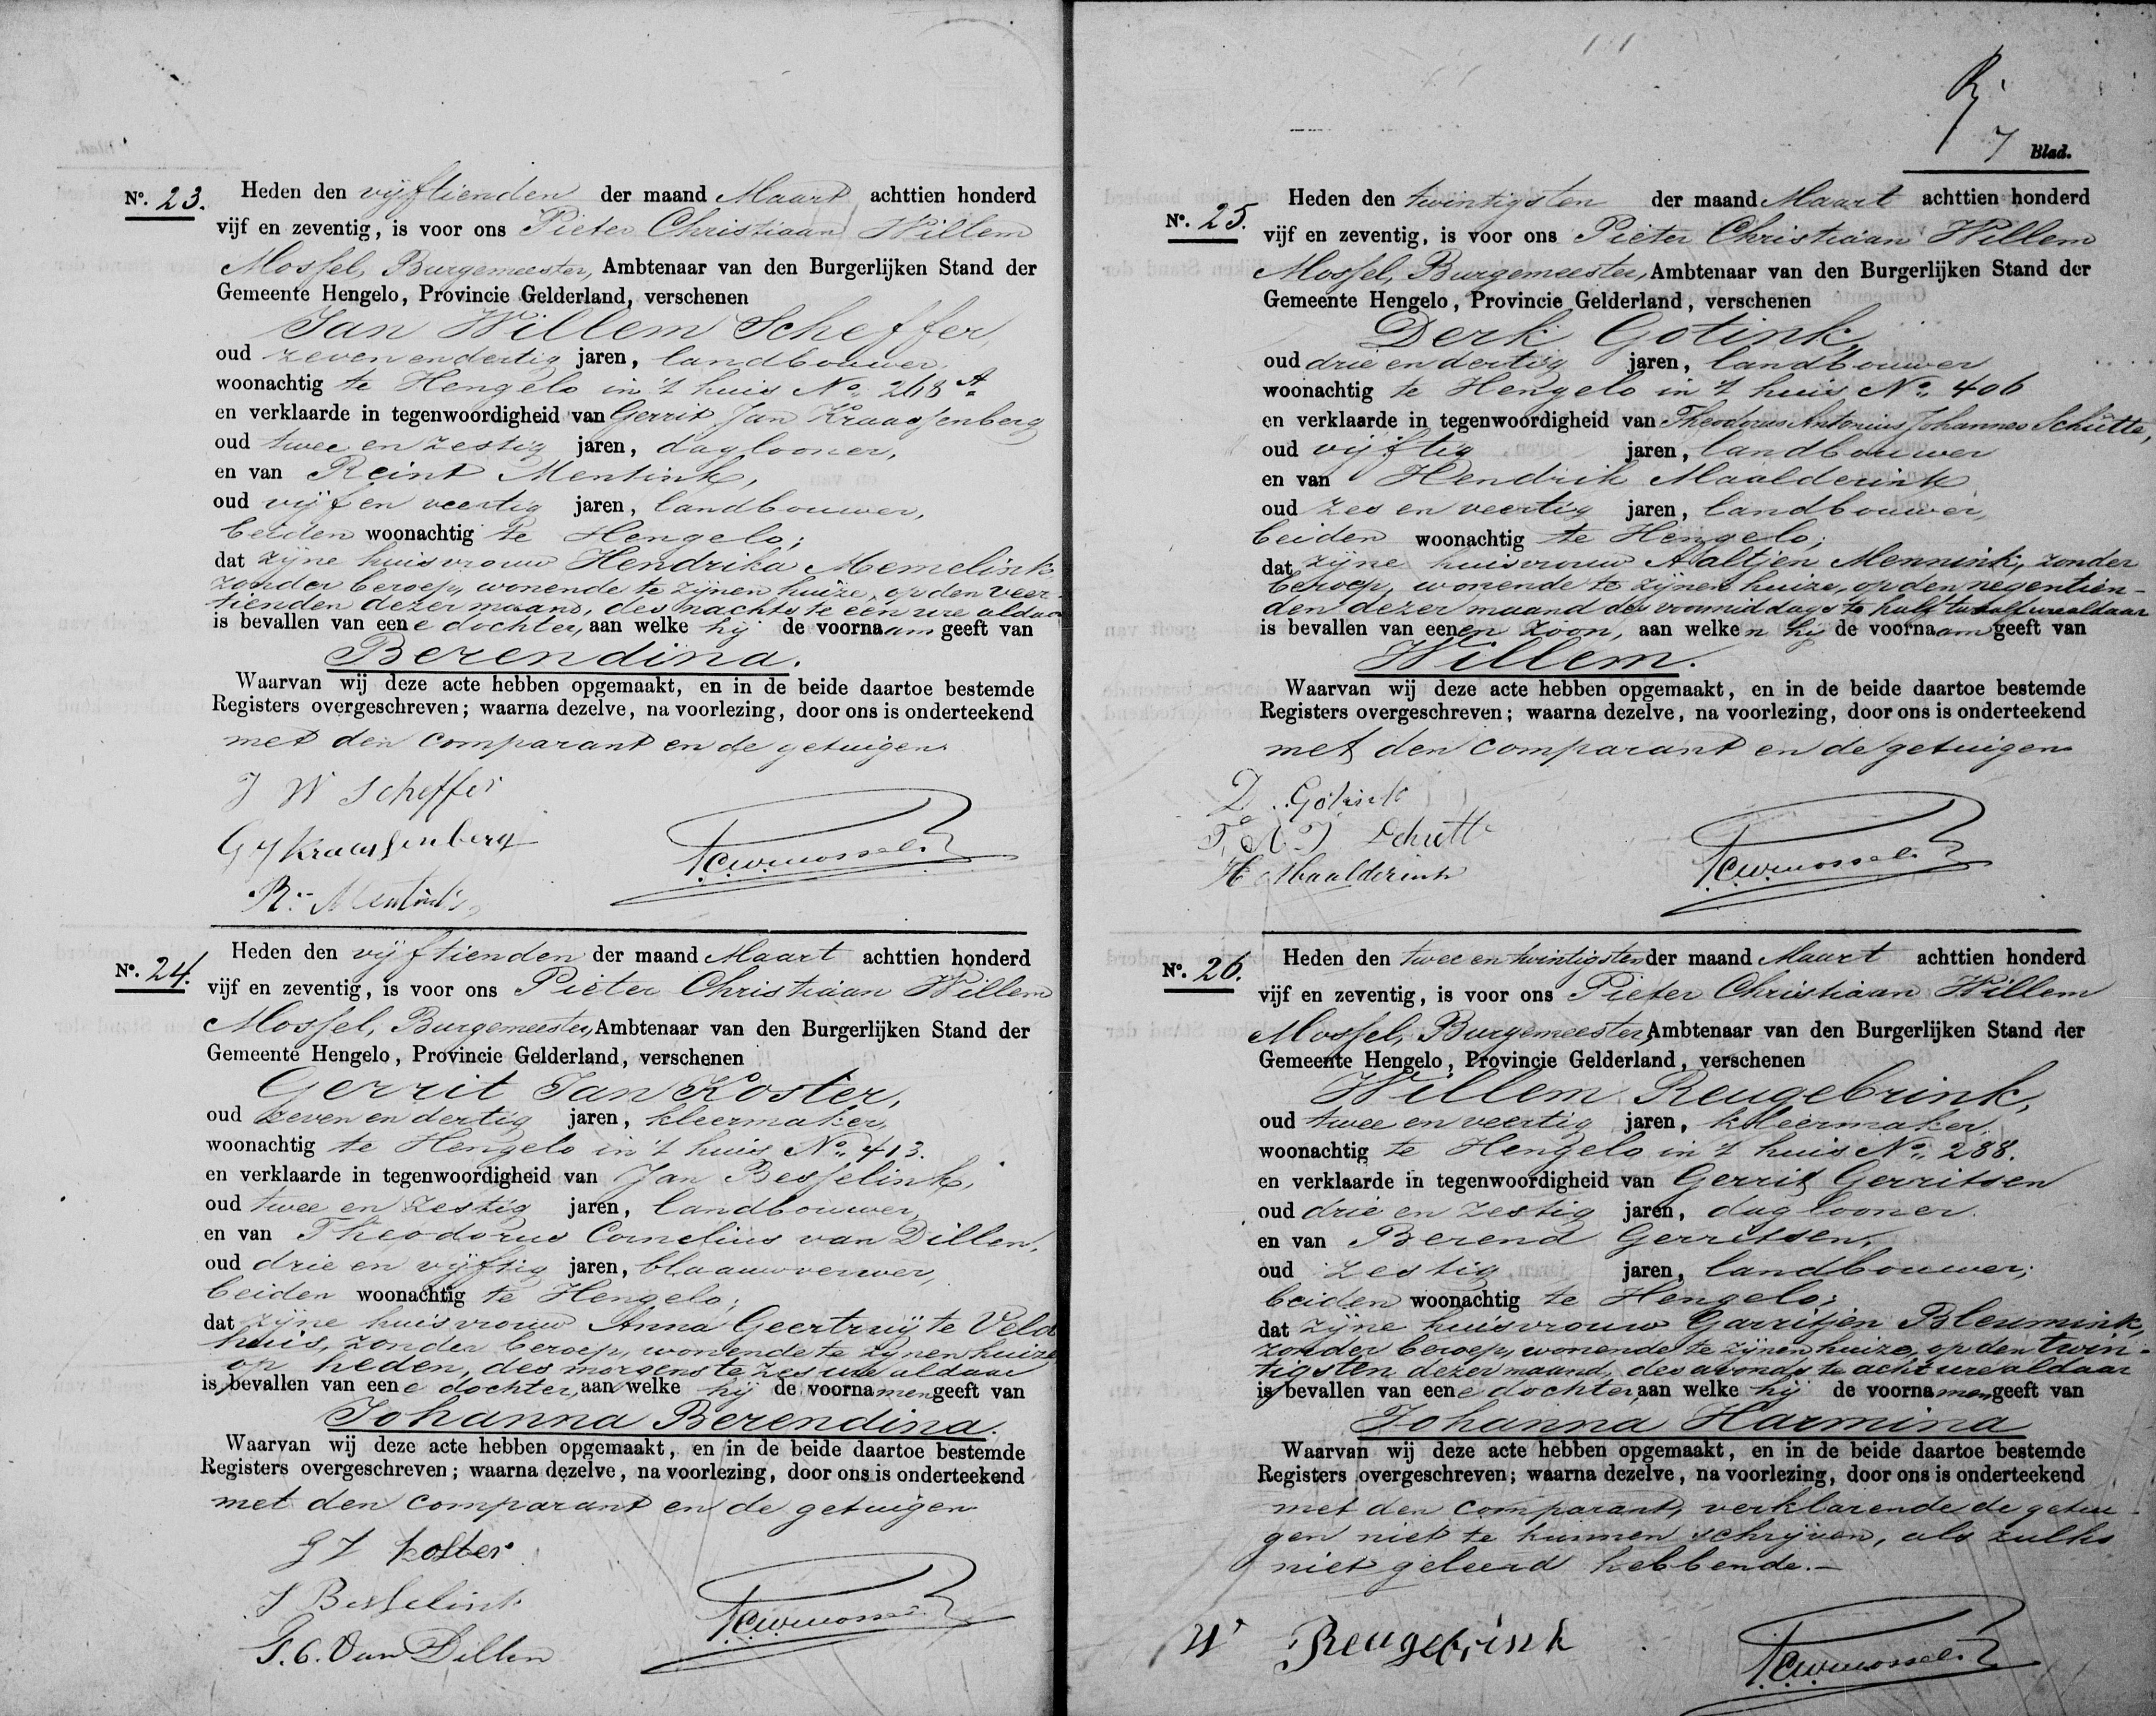 Nº. 23.
Heden den vijftienden der maand Maart achttien honderd
vijf en zeventig, is voor ons Pieter Christiaan Willem
Mossel, Burgemeester, Ambtenaar van den Burgerlijken Stand der
Gemeente Hengelo, Provincie Gelderland, verschenen
Jan Willem Scheffer,
oud zeven en dertig jaren, landbouwer,
woonachtig te Hengelo in 't huis No. 268 A.
en verklaarde in tegenwoordigheid van Gerrit Jan Kraassenberg
oud twee en zestig jaren, daglooner,
en van Reint Mentink,
oud vijf en veertig jaren, landbouwer,
beiden woonachtig te Hengelo;
dat zijne huisvrouw Hendrika Memelink
zonder beroep, wonende te zijnen huize, op den veer-
tienden dezer maand, des nachts te een ure aldaar
is bevallen van eene dochter, aan welke hij de voornaam geeft van
Berendina.
Waarvan wij deze acte hebben opgemaakt, en in de beide daartoe bestemde
Registers overgeschreven; waarna dezelve, na voorlezing, door ons is onderteekend
met den comparant en de getuigen
J W Scheffer
G J Kraassenberg
R. Mentink
P.C.W. Mossel
Nº. 24.
Heden den vijftienden der maand Maart achttien honderd
vijf en zeventig, is voor ons Pieter Christiaan Willem
Mossel, Burgemeester, Ambtenaar van den Burgerlijken Stand der
Gemeente Hengelo, Provincie Gelderland, verschenen
Gerrit Jan Koster,
oud zeven en dertig jaren, kleermaker,
woonachtig te Hengelo in 't huis No. 413.
en verklaarde in tegenwoordigheid van Jan Besselink,
oud twee en zestig jaren, landbouwer,
en van Theodorus Cornelius van Dillen,
oud drie en vijftig jaren, blaauwverwer,
beiden woonachtig te Hengelo;
dat zijne huisvrouw Anna Geertruij te Veld
huis, zonder beroep, wonende te zijnen huize
op heden, des morgens te zes ure aldaar
is bevallen van eene dochter, aan welke hij de voornamen geeft van
Johanna Berendina.
Waarvan wij deze acte hebben opgemaakt, en in de beide daartoe bestemde
Registers overgeschreven; waarna dezelve, na voorlezing, door ons is onderteekend
met den comparant en de getuigen
G J Koster
J Besselink
T. C. Van Dillen
P.C.W. Mossel
7 Blad.
Nº. 25.
Heden den twintigsten der maand Maart achttien honderd
vijf en zeventig, is voor ons Pieter Christiaan Willem
Mossel, Burgemeester, Ambtenaar van den Burgerlijken Stand der
Gemeente Hengelo, Provincie Gelderland, verschenen
Derk Gotink,
oud drie en dertig jaren, landbouwer
woonachtig te Hengelo in 't huis No. 406
en verklaarde in tegenwoordigheid van Theodorus Antonius Johannes Schutte,
oud vijftig jaren, landbouwer
en van Hendrik Maalderink
oud zes en veertig jaren, landbouwer,
beiden woonachtig te Hengelo;
dat zijne huisvrouw Aaltjen Mennink, zonder
beroep, wonende te zijnen huize, op den negentien-
den dezer maand des voormiddags te half twaalf ure aldaar
is bevallen van eenen zoon, aan welken hij de voornaam geeft van
Willem.
Waarvan wij deze acte hebben opgemaakt, en in de beide daartoe bestemde
Registers overgeschreven; waarna dezelve, na voorlezing, door ons is onderteekend
met den comparant en de getuigen
D. Gotink
T. A. J Schutte
H Maalderink
P.C.W. Mossel
Nº. 26.
Heden den twee en twintigsten der maand Maart achttien honderd
vijf en zeventig, is voor ons Pieter Christiaan Willem
Mossel, Burgemeester, Ambtenaar van den Burgerlijken Stand der
Gemeente Hengelo, Provincie Gelderland, verschenen
Willem Reugebrink,
oud twee en veertig jaren, kleermaker,
woonachtig te Hengelo in 't huis No. 288.
en verklaarde in tegenwoordigheid van Gerrit Gerritsen
oud drie en zestig jaren, daglooner.
en van Berend Gerritsen,
oud zestig jaren, landbouwer;
beiden woonachtig te Hengelo;
dat zijne huisvrouw Garritjen Bleumink,
zonder beroep, wonende te zijnen huize, op den twin-
tigsten dezer maand, des avonds te acht ure aldaar
is bevallen van eene dochter, aan welke hij de voornamen geeft van
Johanna Harmina
Waarvan wij deze acte hebben opgemaakt, en in de beide daartoe bestemde
Registers overgeschreven; waarna dezelve, na voorlezing, door ons is onderteekend
met den comparant, verklarende de getui-
gen niet te kunnen schrijven, als zulks
niet geleerd hebbende.-
W Reugebrink
P.C.W. Mossel